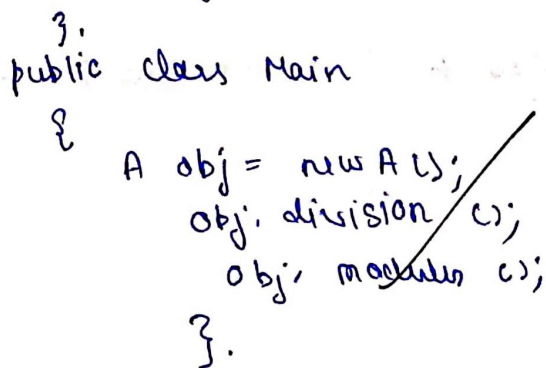 }.
public class Main
{
A obj = new A ();
obj. division ();
obj. modules ();
}.